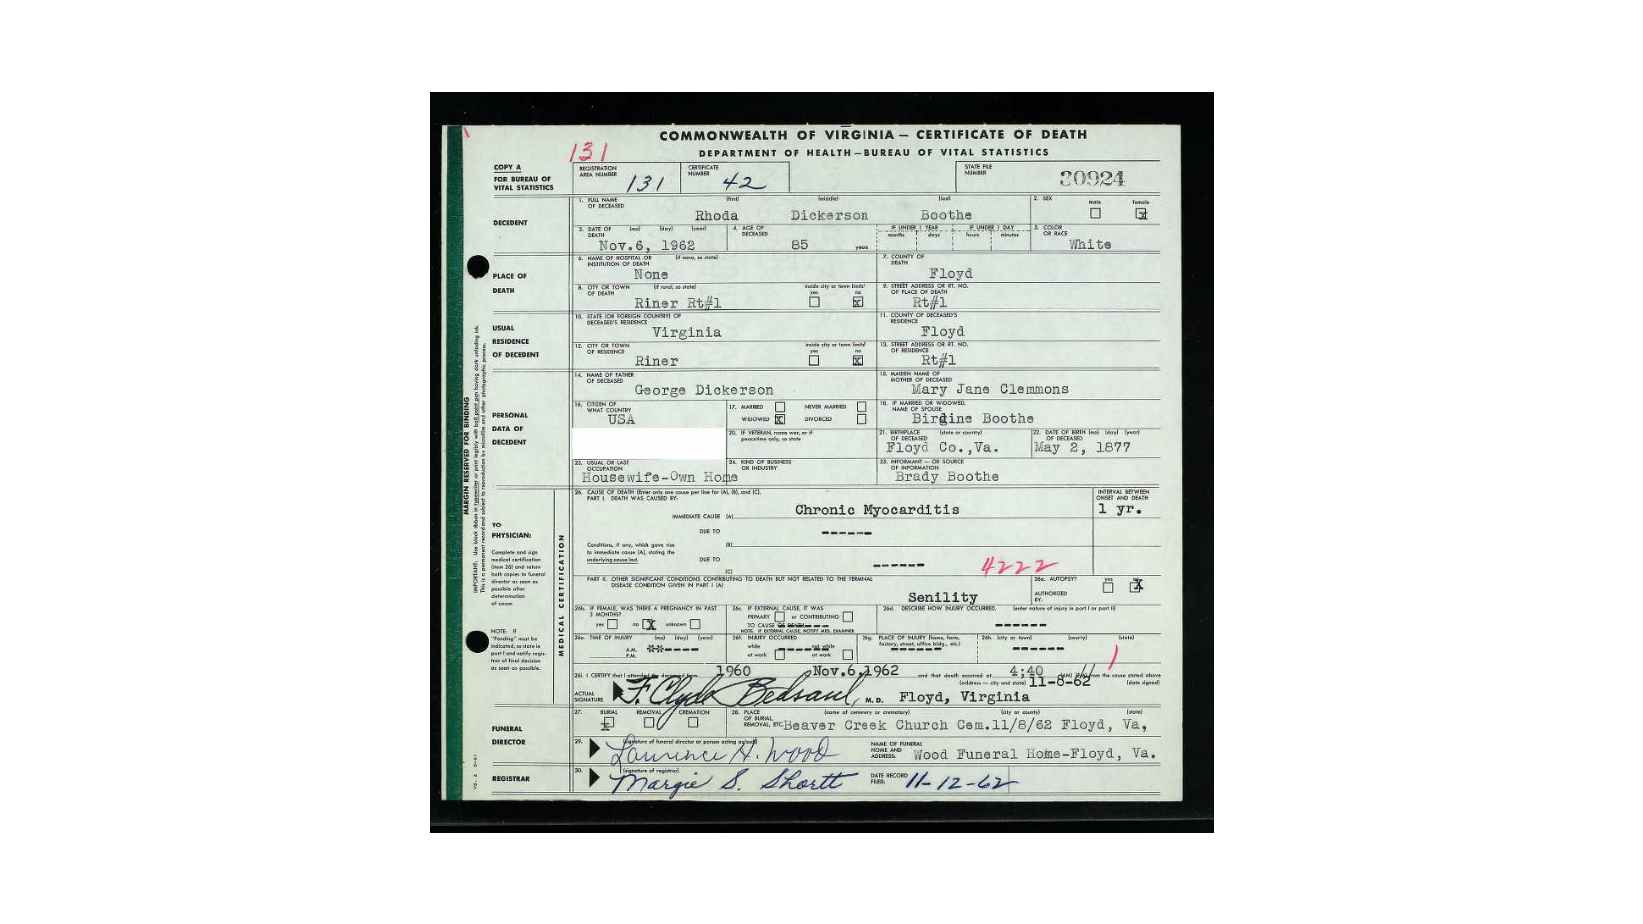 COMMONWEALTH OF VIRGINIA — CERTIFICATE OF DEATH
DEPARTMENT OF HEALTH — BUREAU OF VITAL STATISTICS
131
COPY A
FOR BUREAU OF
VITAL STATISTICS
REGISTRATION
AREA NUMBER 131
CERTIFICATE
NUMBER 42
STATE FILE
NUMBER 30924
DECEDENT
1. FULL NAME OF DECEASED (first) (middle) (last)
Rhoda Dickerson Boothe
2. SEX male female X
3. DATE OF DEATH (mo) (day) (year)
Nov.6, 1962
4. AGE OF DECEASED
85 years
IF UNDER 1 YEAR months days
IF UNDER 1 DAY hours minutes
5. COLOR OR RACE
White
PLACE OF
DEATH
6. NAME OF HOSPITAL OR INSTITUTION OF DEATH (if none, so state)
None
7. COUNTY OF DEATH
Floyd
8. CITY OR TOWN OF DEATH (if rural, so state)
Riner Rt#1
inside city or town limits? yes no X
9. STREET ADDRESS OR RT. NO. OF PLACE OF DEATH
Rt#1
USUAL
RESIDENCE
OF DECEDENT
10. STATE (OR FOREIGN COUNTRY) OF DECEASED'S RESIDENCE
Virginia
11. COUNTY OF DECEASED'S RESIDENCE
Floyd
12. CITY OR TOWN OF RESIDENCE
Riner
inside city or town limits? yes no X
13. STREET ADDRESS OR RT. NO. OF RESIDENCE
Rt#1
PERSONAL
DATA OF
DECEDENT
14. NAME OF FATHER OF DECEASED
George Dickerson
15. MAIDEN NAME OF MOTHER OF DECEASED
Mary Jane Clemmons
16. CITIZEN OF WHAT COUNTRY
USA
17. MARRIED NEVER MARRIED
WIDOWED X DIVORCED
18. IF MARRIED OR WIDOWED, NAME OF SPOUSE
Birdine Boothe
20. IF VETERAN, name war, or if peacetime only, so state
21. BIRTHPLACE OF DECEASED (state or country)
Floyd Co.,Va.
22. DATE OF BIRTH (mo) (day) (year) OF DECEASED
May 2, 1877
23. USUAL OR LAST OCCUPATION
Housewife-Own Home
24. KIND OF BUSINESS OR INDUSTRY
25. INFORMANT — OR SOURCE OF INFORMATION
Brady Boothe
TO
PHYSICIAN:
Complete and sign
medical certification
(item 26) and return
both copies to funeral
director as soon as
possible after
determination
of cause.
NOTE: If
"Pending" must be
indicated, so state in
part I and notify regis-
trar of final decision
as soon as possible.
MEDICAL CERTIFICATION
26. CAUSE OF DEATH (Enter only one cause per line for (A), (B), and (C).
PART I. DEATH WAS CAUSED BY:
INTERVAL BETWEEN ONSET AND DEATH
IMMEDIATE CAUSE (A) Chronic Myocarditis 1 yr.
DUE TO ------
Conditions, if any, which gave rise
to immediate cause (A), stating the
underlying cause last.
(B)
DUE TO ------
(C)
4222
PART II. OTHER SIGNIFICANT CONDITIONS CONTRIBUTING TO DEATH BUT NOT RELATED TO THE TERMINAL
DISEASE CONDITION GIVEN IN PART I (A)
Senility
26a. AUTOPSY? yes no X
AUTHORIZED BY:
26b. IF FEMALE, WAS THERE A PREGNANCY IN PAST 3 MONTHS?
yes no X unknown
26c. IF EXTERNAL CAUSE, IT WAS
PRIMARY or CONTRIBUTING
TO CAUSE OF DEATH
NOTE: IF EXTERNAL CAUSE, NOTIFY MED. EXAMINER
26d. DESCRIBE HOW INJURY OCCURRED. (enter nature of injury in part I or part II)
------
26e. TIME OF INJURY (mo) (day) (year)
A.M.
P.M.
26f. INJURY OCCURRED
while at work not while at work
26g. PLACE OF INJURY (home, farm, factory, street, office bldg., etc.)
26h. (city or town) (county) (state)
26i. I CERTIFY that I attended the deceased from 1960 Nov.6,1962 and that death occurred at 4:40 from the cause stated above
ACTUAL SIGNATURE F. Clyde Bedsaul, M.D. Floyd, Virginia
(address — city and state) 11-8-62 (date signed)
FUNERAL
DIRECTOR
27. BURIAL X REMOVAL CREMATION
28. PLACE OF BURIAL, REMOVAL, ETC. (name of cemetery or crematory) (city or county) (state)
Beaver Creek Church Cem.11/8/62 Floyd, Va,
29. (signature of funeral director or person acting as such)
Lawrence H. Wood
NAME OF FUNERAL HOME AND ADDRESS:
Wood Funeral Home-Floyd, Va.
REGISTRAR
30. (signature of registrar)
Margie S. Shortt
DATE RECORD FILED: 11-12-62
MARGIN RESERVED FOR BINDING